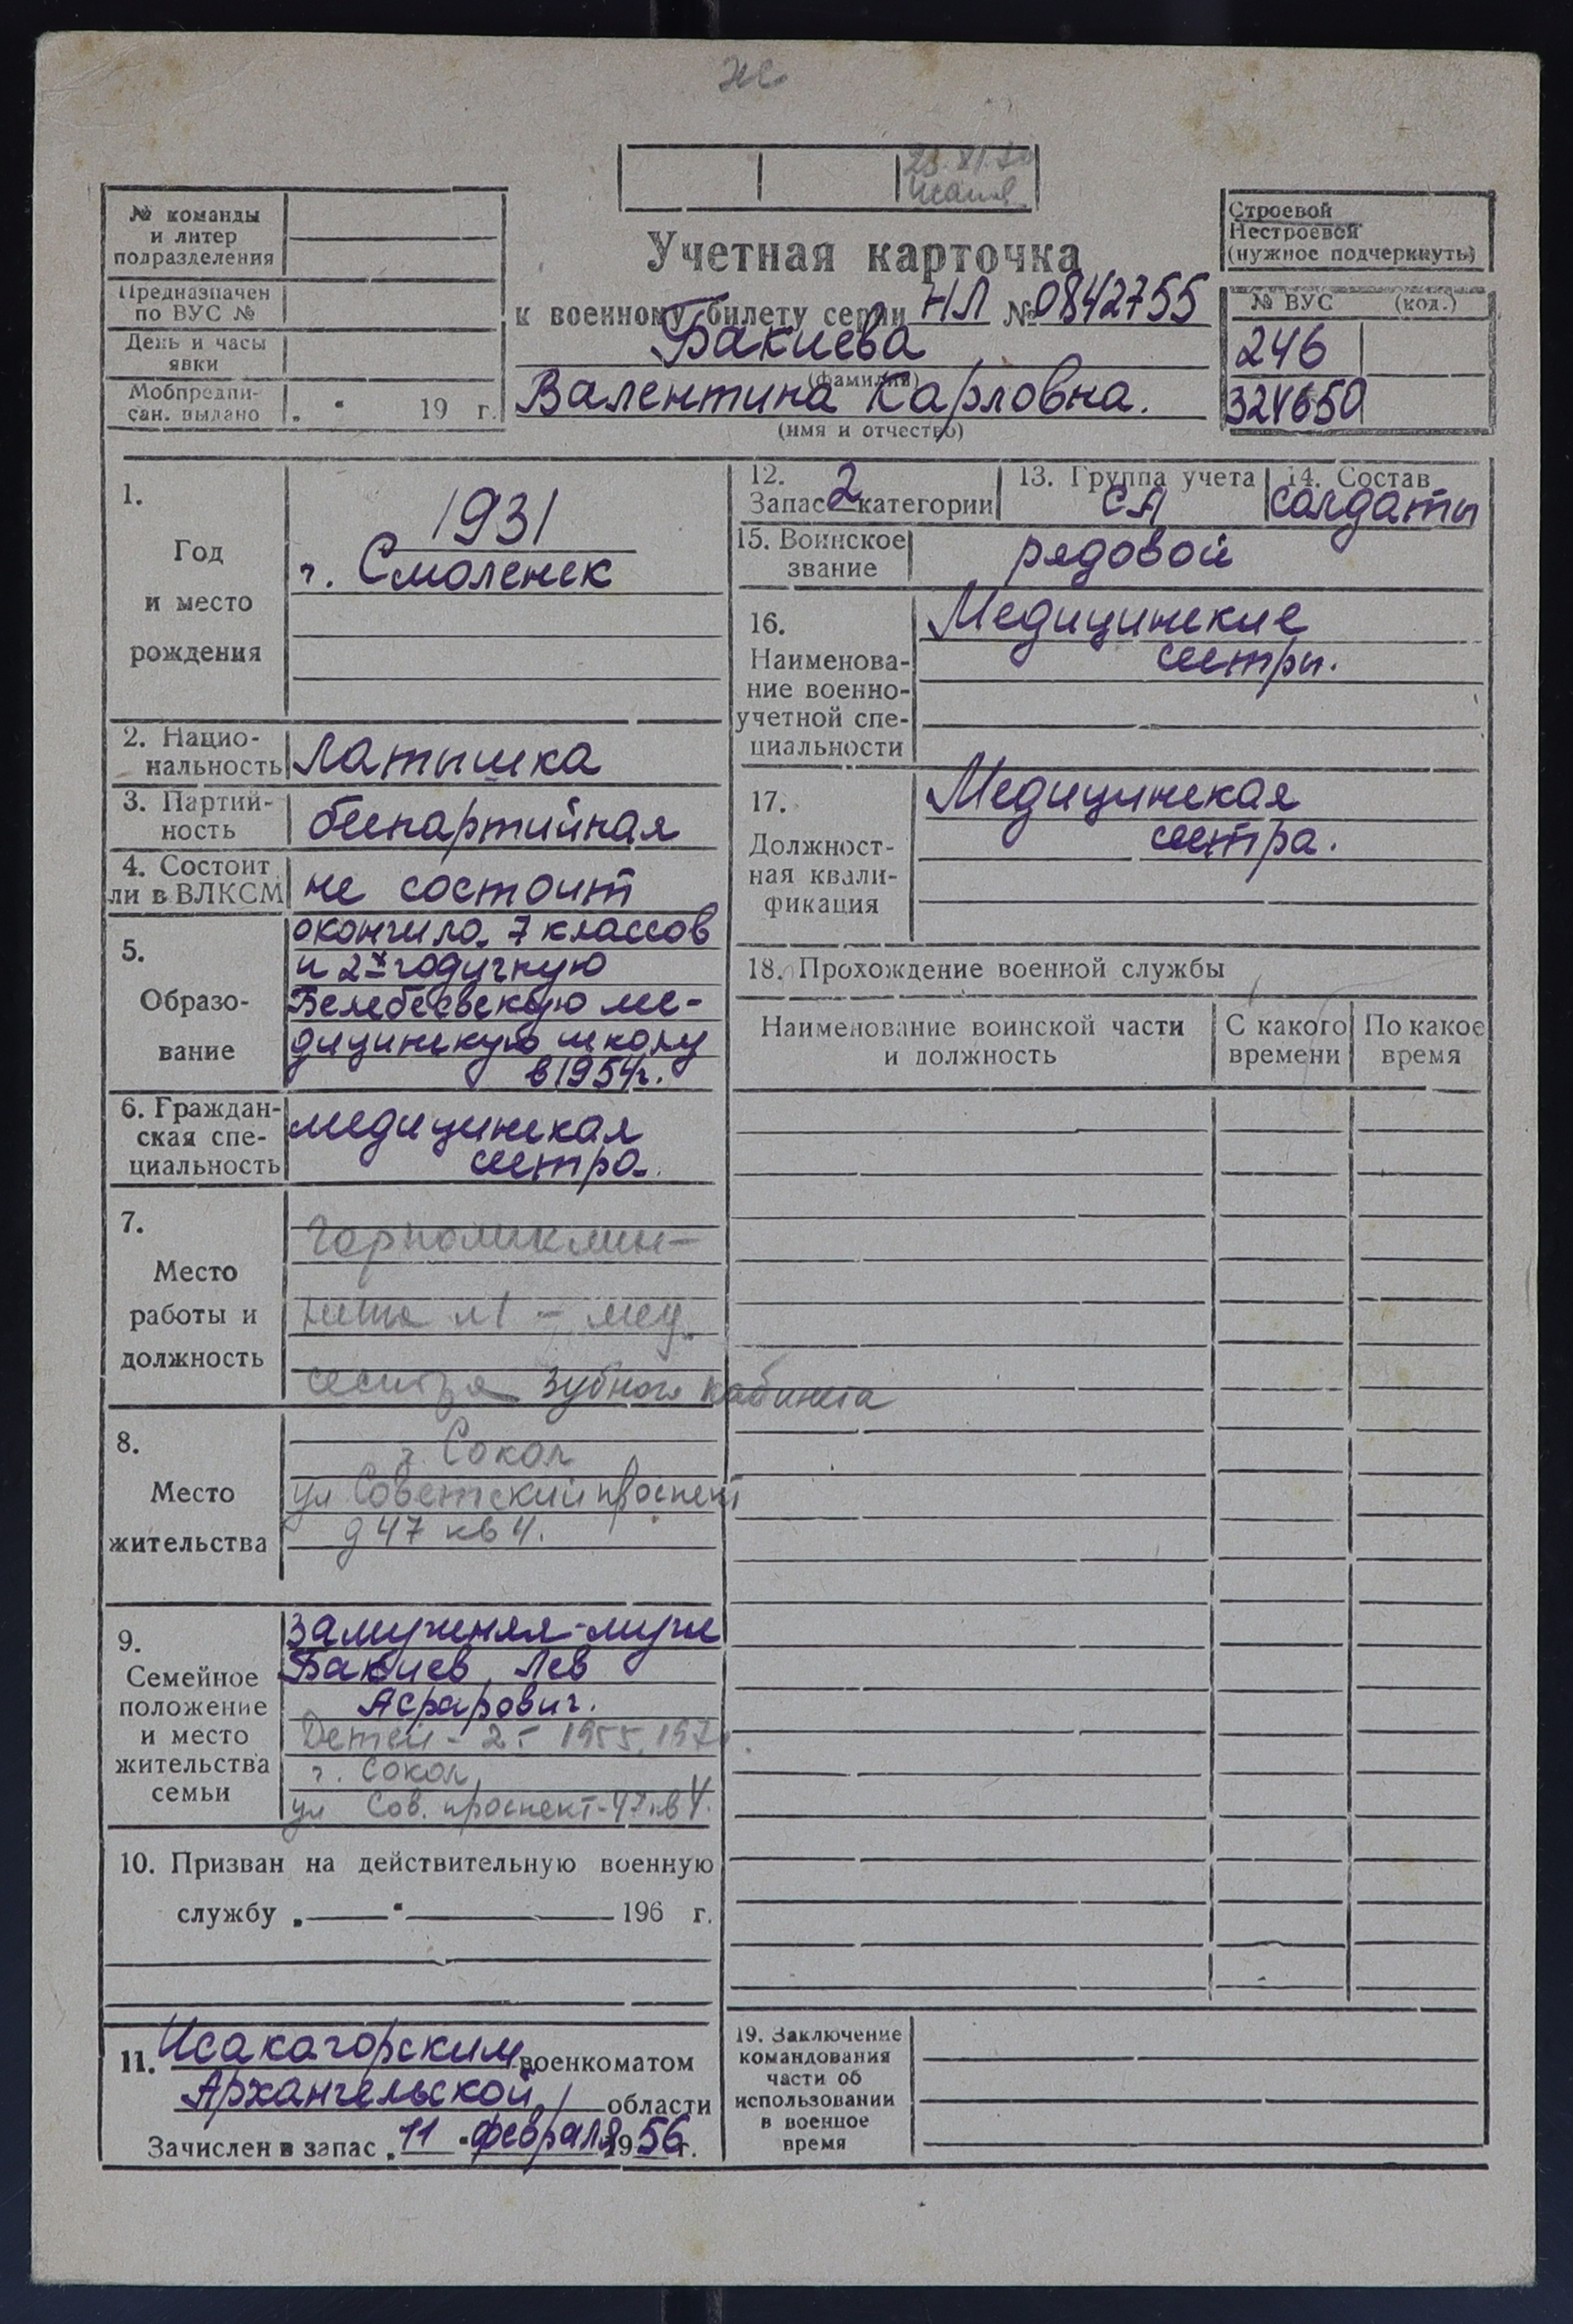 № команды
и литер
подразделения
Предназначен
по ВУС №
День и часы
явки
Мобпредпи-
сан. выдано „ “ 19 г.
Учетная карточка
к военному билету серии НЛ № 0842755
Бакиева
(фамилия)
Валентина Карловна.
(имя и отчество)
Строевой
Нестроевой
(нужное подчеркнуть)
№ ВУС (код.)
246
1.
Год
и место
рождения
1931
г. Смоленск
2. Нацио-
нальность
латышка
3. Партий-
ность
беспартийная
4. Состоит
ли в ВЛКСМ
не состоит
5.
Образо-
вание
окончила 7 классов
и 2х годичную
Белебеевскую ме-
дицинскую школу
в 1954г.
6. Граждан-
ская спе-
циальность
медицинская
сестра.
7.
Место
работы и
должность
Горполиклин-
мед.
сестра зубного кабинета
8.
Место
жительства
г. Сокол
ул Советский проспект
д 47 кв 4.
9.
Семейное
положение
и место
жительства
семьи
замужняя-муж
Бакиев Лев
Асрарович.
Детей - 2 - 1955,
г. Сокол
ул Сов. проспект-47 кв 4.
10. Призван на действительную военную
службу „ — “ — 196 г.
11. Исакагорским военкоматом
Архангельской области
Зачислен в запас „ 11 “ февраля 1956 г.
12.
Запас 2 категории
13. Группа учета
СА
14. Состав
солдаты
15. Воинское
звание
рядовой
16.
Наименова-
ние военно-
учетной спе-
циальности
Медицинские
сестры.
17.
Должност-
ная квали-
фикация
Медицинская
сестра.
18. Прохождение военной службы
Наименование воинской части
и должность
С какого
времени
По какое
время
19. Заключение
командования
части об
использовании
в военное
время